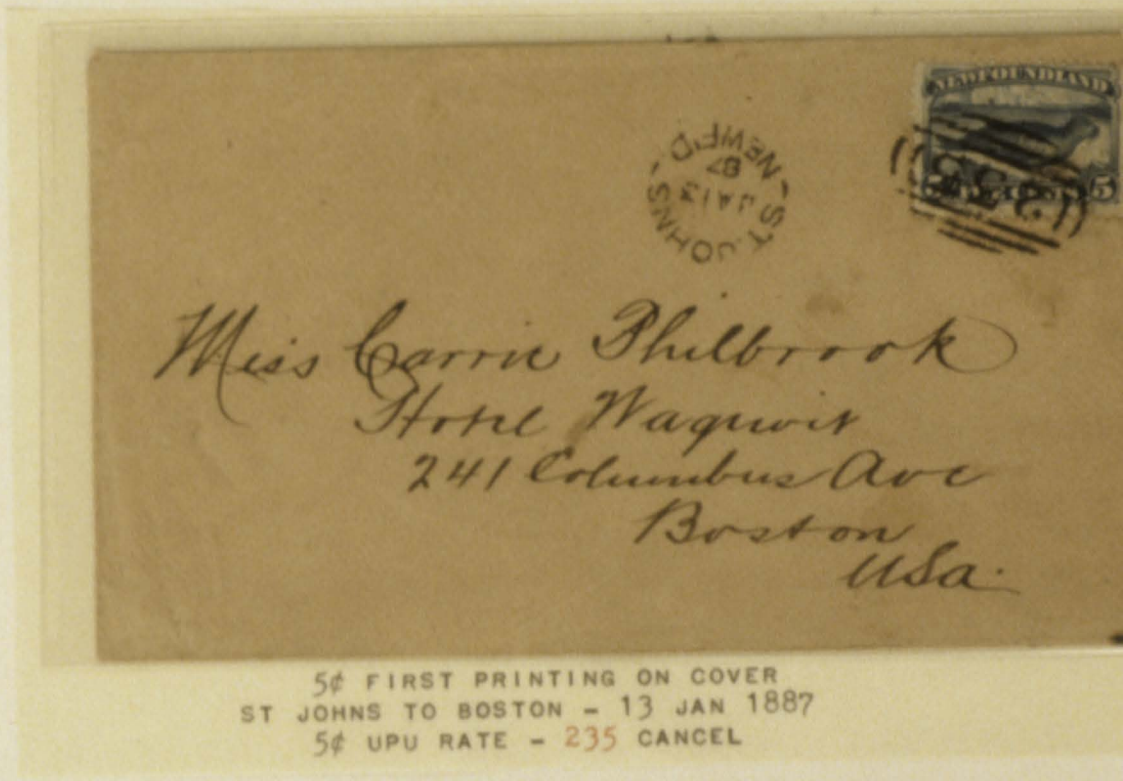 NEWFOUNDLAND
5
235
ST. JOHNS - NEWF'D -
JA 13
87
Miss Carrie Philbrook
Hotel Waquoit
241 Columbus Ave
Boston
USa.
5¢ FIRST PRINTING ON COVER
ST JOHNS TO BOSTON - 13 JAN 1887
5¢ UPU RATE - 235 CANCEL